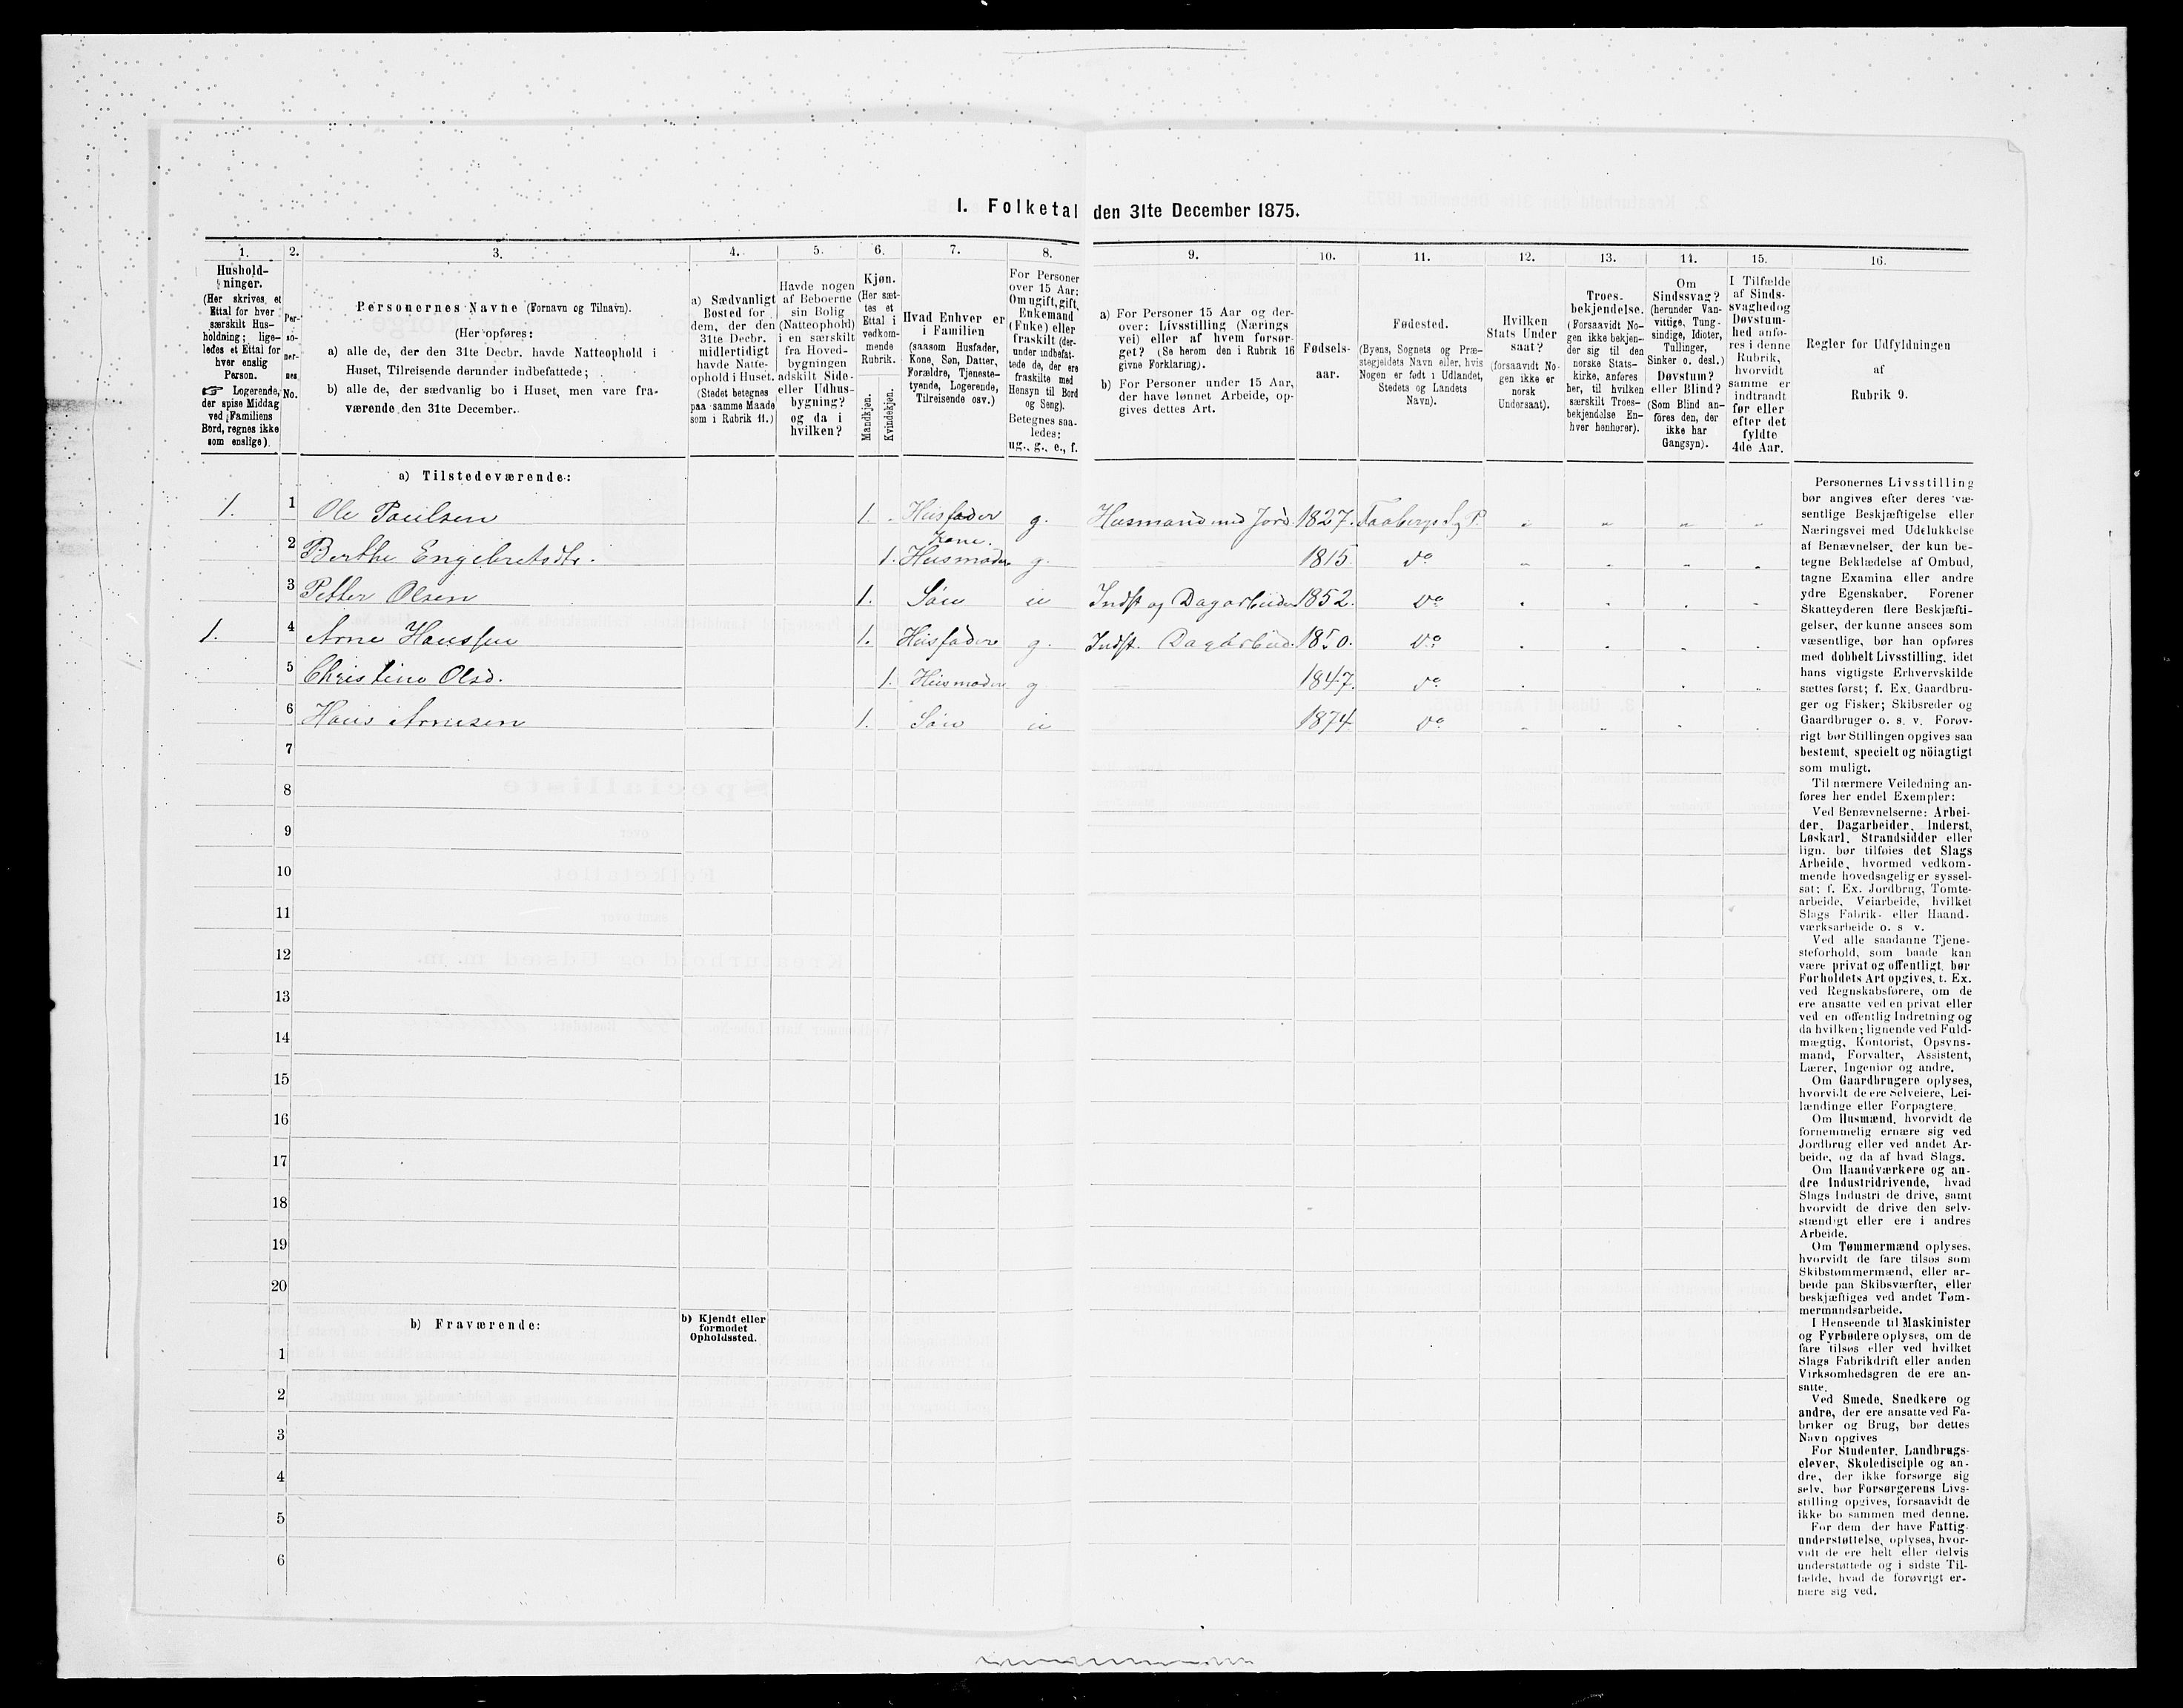 1. Folketal den 31te December 1875.
1. 2. 3. 4. 5. 6. 7. 8. 9. 10. 11. 12. 13. 14. 15. 16.
Hushold-
ninger.
(Her skrives et
Ettal for hver
særskilt Hus-
holdning; lige-
ledes et Ettal for
hver enslig
Person.
☞ Logerende,
der spise Middag
ved Familiens
Bord, regnes ikke
som enslige).
Per-
so-
ner-
nes
No.
Personernes Navne (Fornavn og Tilnavn).
(Her opføres:
a) alle de, der den 31te Decbr. havde Natteophold i
Huset, Tilreisende derunder indbefattede;
b) alle de, der sædvanlig bo i Huset, men vare fra-
værende den 31te December.
a) Sædvanligt
Bosted for
dem, der den
31te Decbr.
midlertidigt
havde Natte-
ophold i Huset.
(Stedet betegnes
paa samme Maade
som i Rubrik 11.)
Havde nogen
af Beboerne
sin Bolig
(Natteophold)
i en særskilt
fra Hoved-
bygningen
adskilt Side-
eller Udhus-
bygning?
og da i
hvilken?
Kjøn.
(Her sæt-
tes et
Ettal i
vedkom-
mende
Rubrik.
Mandkjøn.
Kvindekjøn.
Hvad Enhver er
i Familien
(saasom Husfader,
Kone, Søn, Datter,
Forældre, Tjeneste-
tyende, Logerende,
Tilreisende osv.)
For Personer
over 15 Aar:
Om ugift, gift,
Enkemand
(Enke) eller
fraskilt (der-
under indbefat-
tede de, der ere
fraskilte med
Hensyn til Bord
og Seng).
Betegnes saa-
ledes:
ug., g., e., f.
a) For Personer 15 Aar og der-
over: Livsstilling (Nærings
vei) eller af hvem forsør-
get? (Se herom den i Rubrik 16
givne Forklaring).
b) For Personer under 15 Aar,
der have lønnet Arbeide, op-
gives dettes Art.
Fødsels-
aar.
Fødested.
(Byens, Sognets og Præ-
stegjeldets Navn eller, hvis
Nogen er født i Udlandet,
Stedets og Landets
Navn).
Hvilken
Stats Under
saat?
(forsaavidt No-
gen ikke er
norsk
Undersaat).
Troes-
bekjendelse.
(Forsaavidt No-
gen ikke bekjen-
der sig til den
norske Stats-
kirke, anføres
her, til hvilken
særskilt Troes-
bekjendelse En-
hver henhører).
Om
Sindssvag?
(herunder Van-
vittige, Tung-
sindige, Idioter,
Tullinger,
Sinker o. desl.)
Døvstum?
eller Blind?
(Som Blind an-
føres den, der
ikke har
Gangsyn).
I Tilfælde
af Sinds-
svaghed og
Døvstum-
hed anfø-
res i denne
Rubrik,
hvorvidt
samme er
indtraadt
før eller
efter det
fyldte
4de Aar.
Regler for Udfyldningen
af
Rubrik 9.
a) Tilstedeværende:
1. 1 Ole Paulsen 1. Husfader g. Husmand med Jord. 1827. Faabergs S. & P. " " " "
2 Berthe Engebretsdtr. 1. Kone. Husmoder g. 1815. do " " " "
3 Petter Olsen 1. Søn u Indst og Dagarbeider 1852. do " " " "
1. 4 Arne Hanssen 1. Husfader g. Indst. Dagarbeid. 1850. do " " " "
5 Christine Olsd. 1. Husmoder g 1847. do " " " "
6 Hans Arnesen 1. Søn u 1874. do " " " "
7
8
9
10
11
12
13
14
15
16
17
18
19
20
b) Fraværende:
b) Kjendt eller
formodet
Opholdssted.
1
2
3
4
5
6
Personernes Livsstilling
bør angives efter deres væ-
sentlige Beskjæftigelse eller
Næringsvei med Udelukkelse
af Benævnelser, der kun be-
tegne Beklædelse af Ombud,
tagne Examina eller andre
ydre Egenskaber. Forener
Skatteyderen flere Beskjæfti-
gelser, der kunne ansees som
væsentlige, bør han opføres
med dobbelt Livsstilling, idet
hans vigtigste Erhvervskilde
sættes først; f. Ex. Gaardbru-
ger og Fisker; Skibsreder og
Gaardbruger o. s. v. Forøv-
rigt bør Stillingen opgives saa
bestemt, specielt og nöiagtigt
som muligt.
Til nærmere Veiledning an-
føres her endel Exempler:
Ved Benævnelserne: Arbei-
der, Dagarbeider, Inderst,
Løskarl, Strandsidder eller
lign. bør tilføies det Slags
Arbeide, hvormed vedkom-
mende hovedsagelig er syssel-
sat; f. Ex. Jordbrug, Tomte-
arbeide, Veiarbeide, hvilket
Slags Fabrik- eller Haand-
værksarbeide o. s v.
Ved alle saadanne Tjene-
steforhold, som baade kan
være privat og offentligt, bør
Forholdets Art opgives, t. Ex.
ved Regnskabsførere, om de
ere ansatte ved en privat eller
ved en offentlig Indretning og
da hvilken; lignende ved Fuld-
mægtig, Kontorist, Opsyns-
mand, Forvalter, Assistent,
Lærer, Ingeniør og andre.
Om Gaardbrugere oplyses,
hvorvidt de ere Selveiere, Lei-
lændinge eller Forpagtere.
Om Husmænd, hvorvidt de
fornemmelig ernære sig ved
Jordbrug eller ved andet Ar-
beide, og da af hvad Slags.
Om Haandværkere og an-
dre Industridrivende, hvad
Slags Industri de drive, samt
hvorvidt de drive den selv-
stændigt eller ere i andres
Arbeide.
Om Tømmermænd oplyses,
hvorvidt de fare tilsøs som
Skibstømmermænd, eller ar-
beide paa Skibsværfter, eller
beskjæftiges ved andet Tøm-
mermandsarbeide.
I Henseende til Maskinister
og Fyrbødere oplyses, om de
fare tilsøs eller ved hvilket
Slags Fabrikdrift eller anden
Virksomhedsgren de ere an-
satte.
Ved Smede, Snedkere og
andre, der ere ansatte ved Fa-
briker og Brug, bør dettes
Navn opgives
For Studenter, Landbrugs-
elever, Skoledisciple og an-
dre, der ikke forsørge sig
selv, bør Forsørgerens Livs-
stilling opgives, forsaavidt de
ikke bo sammen med denne.
For dem der have Fattig-
understøttelse, oplyses, hvor-
vidt de ere helt eller delvis
understøttede og i sidste Til-
fælde, hvad de forøvrigt er-
nære sig ved.